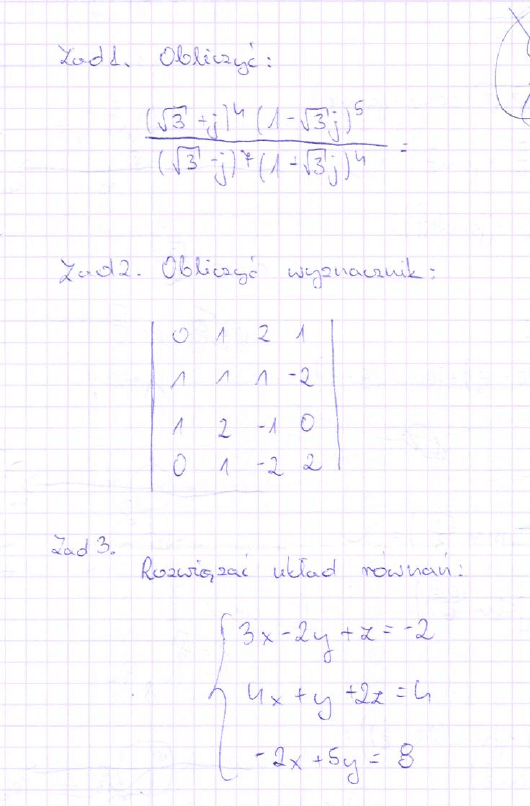 Zad1. Obliczyć:
(√3 + j)⁴ (1 - √3 j)⁵
(√3 - j)⁷ (1 + √3 j)⁴ =
Zad2. Obliczyć wyznacznik:
0 1 2 1
1 1 1 -2
1 2 -1 0
0 1 -2 2
Zad 3.
Rozwiązać układ równań:
3x - 2y + z = -2
4x + y + 2z = 4
-2x + 5y = 8